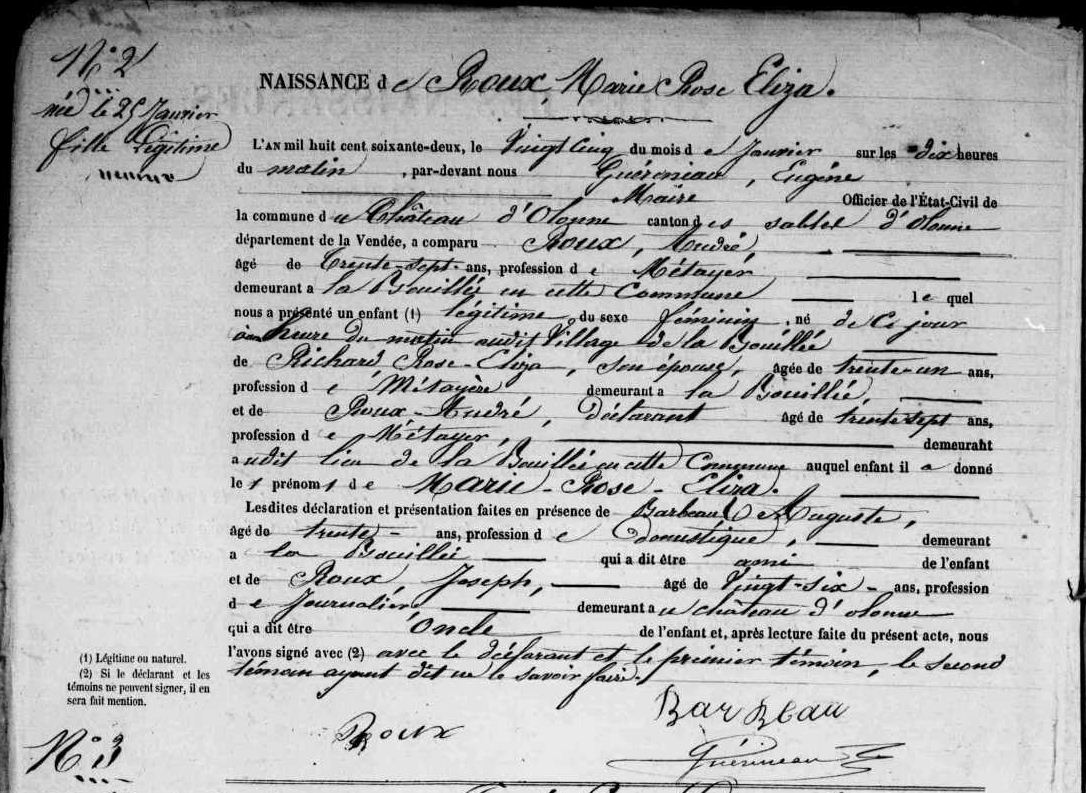 N° 2
née le 25 Janvier
fille légitime
NAISSANCE de Roux, Marie Rose Eliza.
L'AN mil huit cent soixante-deux, le Vingt Cinq du mois de Janvier sur les dix heures
du matin, par-devant nous Guérineau, Eugène
Maire Officier de l'État-Civil de
la commune du Château d'Olonne canton des sables d'olonne
département de la Vendée, a comparu Roux, André,
âgé de trente-sept ans, profession de Métayer
demeurant a la Bouillée en cette Commune lequel
nous a présenté un enfant (1) légitime du sexe féminin, né de Ce jour
heure du matin audit Village de la Bouillée
de Richard, Rose-Eliza, son épouse, âgée de trente-un ans,
profession de Métayère demeurant a la Bouillée,
et de Roux-André, déclarant âgé de trente-sept ans,
profession de Métayer, demeurant
audit lieu de la Bouillée en cette Commune auquel enfant il a donné
les prénoms de Marie-Rose-Eliza.
Lesdites déclaration et présentation faites en présence de Barbeau Auguste,
âgé de trente- ans, profession de Domestique, demeurant
a la Bouillée qui a dit être ami de l'enfant
et de Roux, Joseph, âgé de Vingt-six- ans, profession
de Journalier demeurant au château d'olonne
qui a dit être Oncle de l'enfant et, après lecture faite du présent acte, nous
l'avons signé avec (2) avec le déclarant et le premier témoin, le second
témoin ayant dit ne le savoir faire.
(1) Légitime ou naturel.
(2) Si le déclarant et les
témoins ne peuvent signer, il en
sera fait mention.
Roux
BarBeau
Guérineau
N° 3